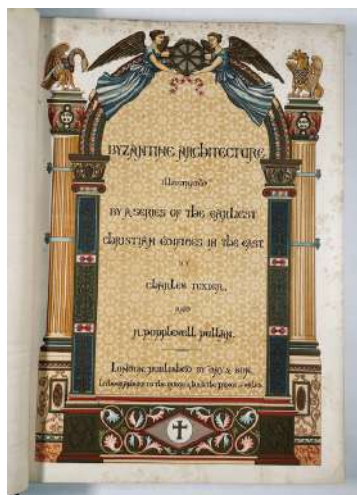 BYZANTINE ARCHITECTURE
Illustrated
BY A SERIES OF THE EARLIEST
CHRISTIAN EDIFICES IN THE EAST
BY
CHARLES TEXIER,
AND
R. POPPLEWELL PULLAN.
LONDON, PUBLISHED BY DAY & SON,
Lithographers to the Queen & to the Prince of Wales.